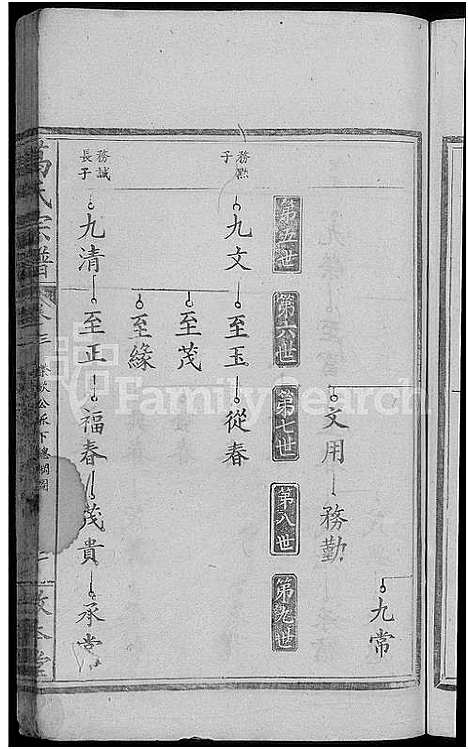 九常
文用 務勤
第五世 第六世 第七世 第八世 第九世
務㷧子
九文 至玉 從春
至茂
至緣
務誠長子
九清 至正 福春 茂貴 承常
萬氏宗譜
FamilySearch